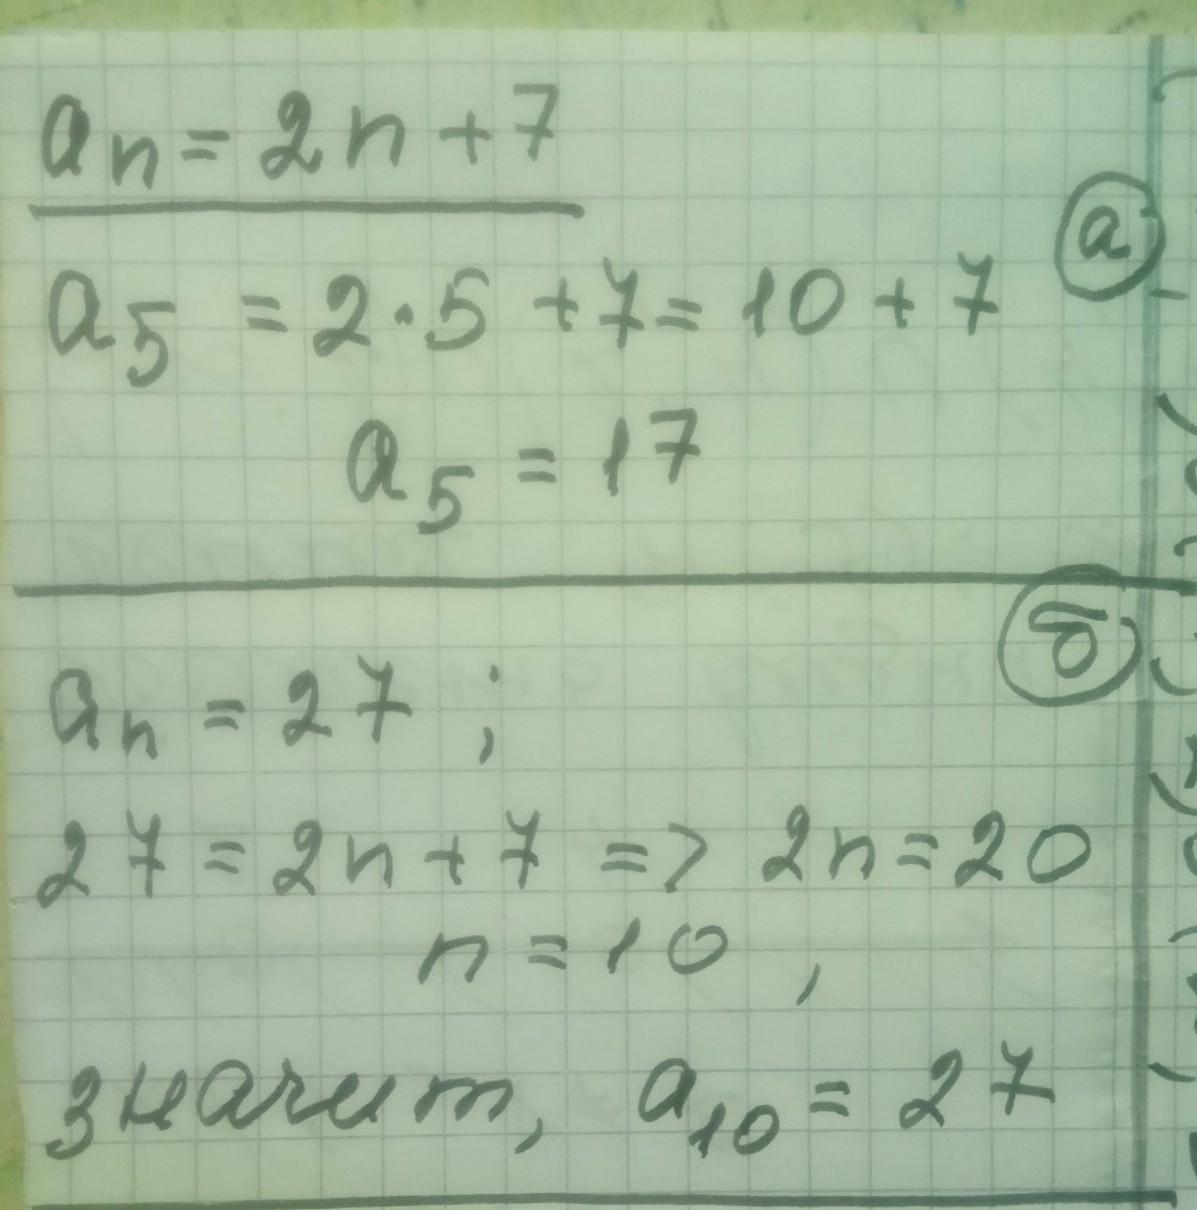 aₙ = 2n + 7
а
a₅ = 2·5 + 7 = 10 + 7
a₅ = 17
б
aₙ = 27 ;
27 = 2n + 7 => 2n = 20
n = 10 ,
значит, a₁₀ = 27